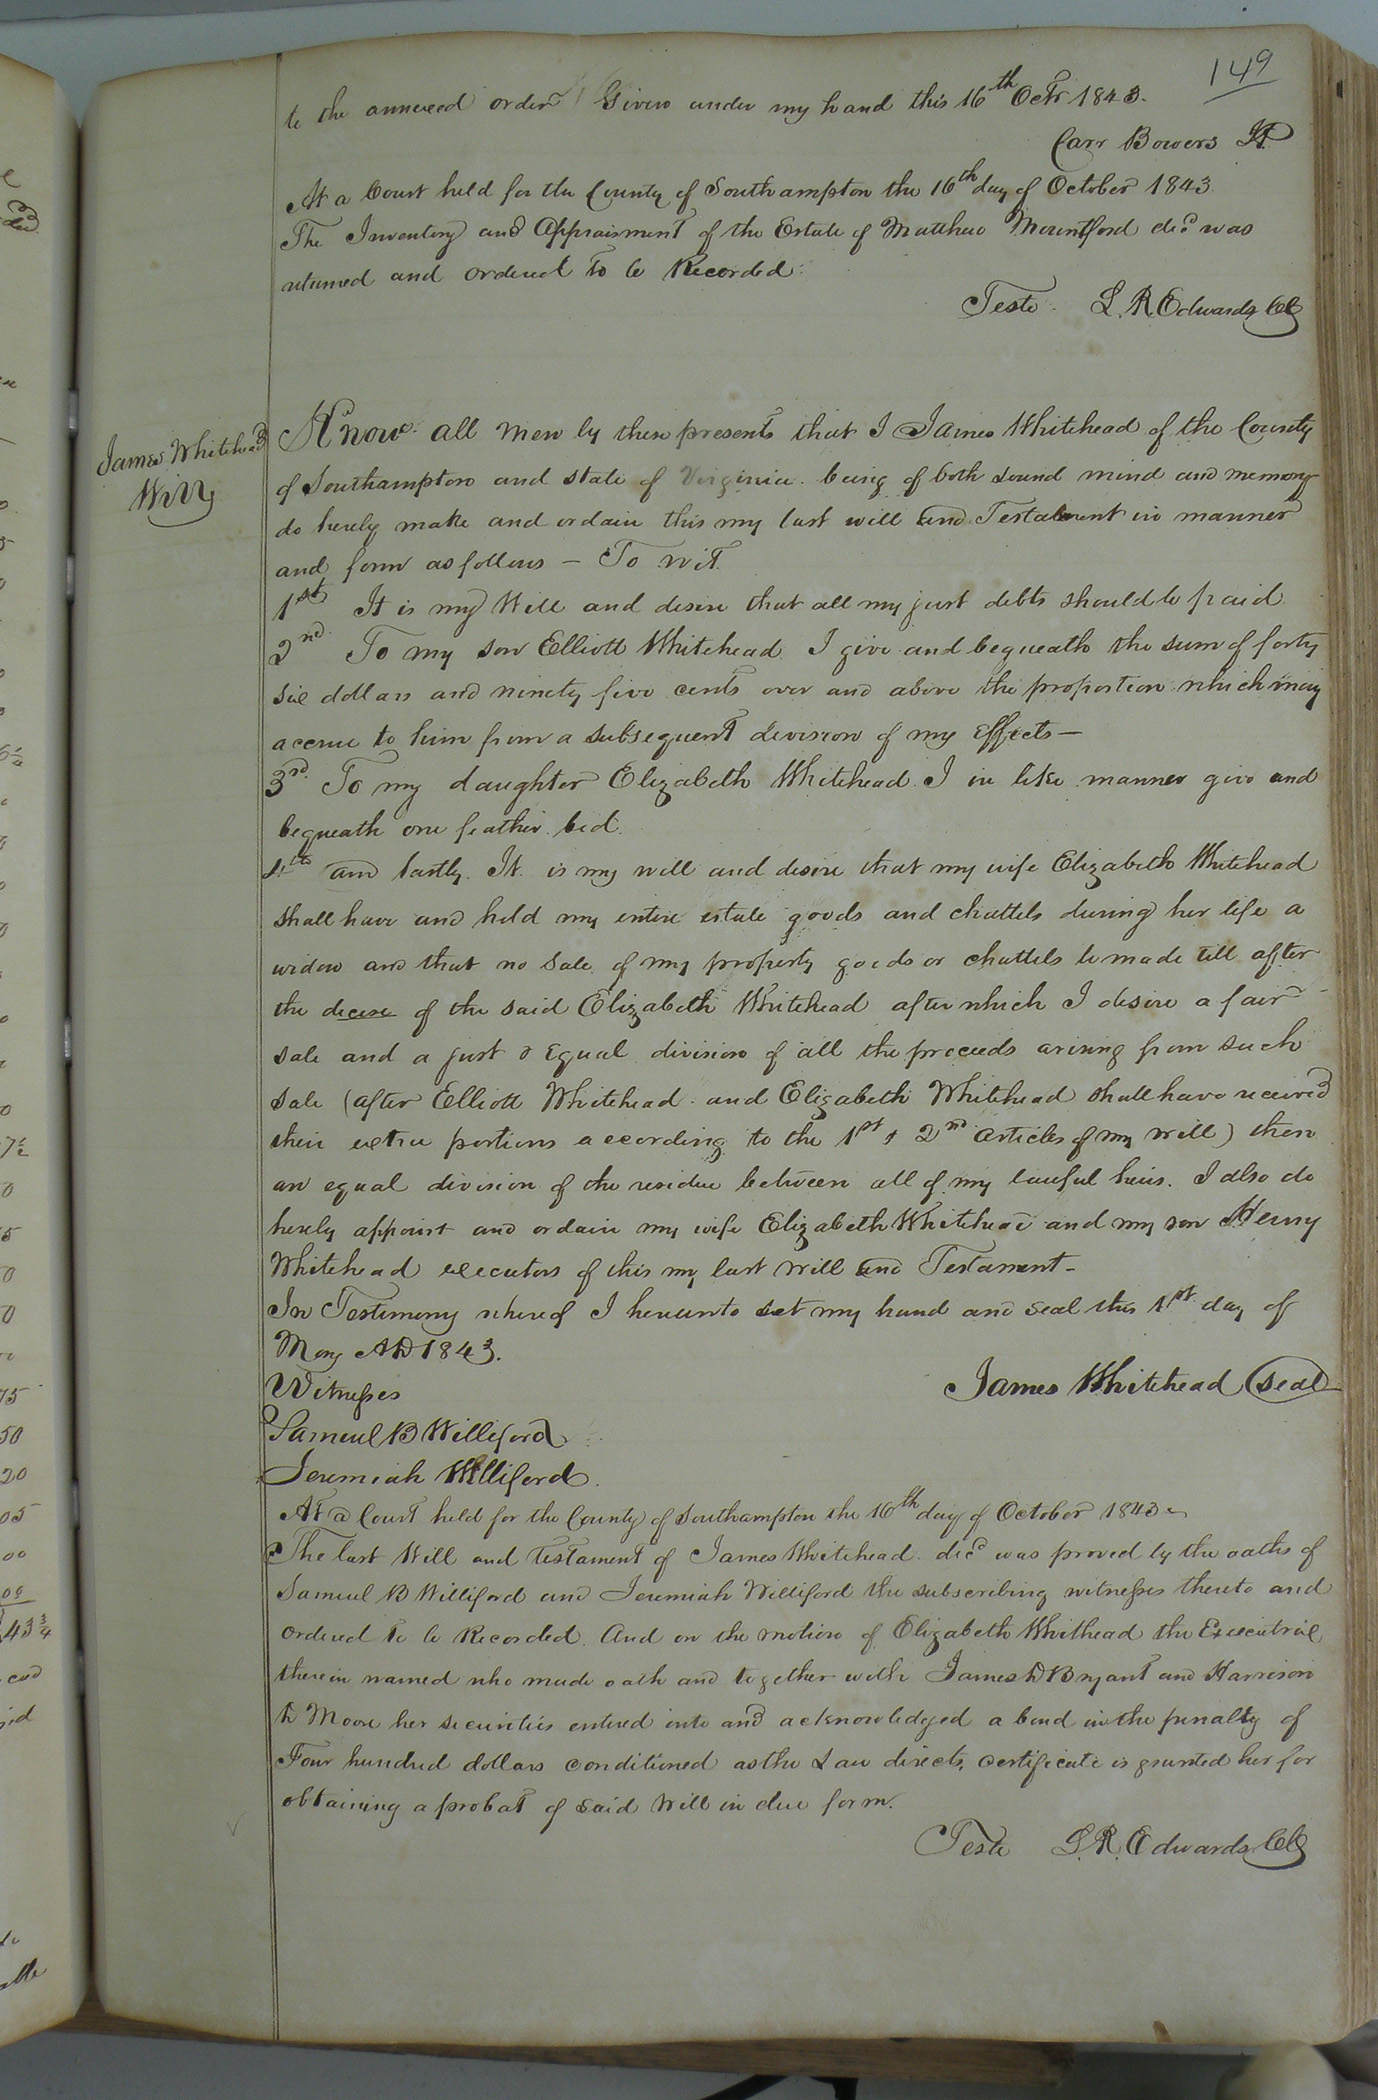 149
to the annexed order Given under my hand this 16th Octr 1843.
Carr Bowers JP
At a Court held for the County of Southampton the 16th day of October 1843.
The Inventory and Appraisment of the Estate of Matthew Mountford decd was
returned and ordered to be Recorded.
Teste L. R. Edwards Clk
James Whitehead
Will
Know all Men by these presents that I James Whitehead of the County
of Southampton and state of Virginia being of both sound mind and memory
do hereby make and ordain this my last will and Testament in manner
and form as follows — To wit
1st It is my Will and desire that all my just debts should be paid
2nd To my son Elliott Whitehead I give and bequeath the sum of forty
six dollars and ninety five cents over and above the proportion which may
accrue to him from a subsequent division of my Effects —
3rd To my daughter Elizabeth Whitehead I in like manner give and
bequeath one feather bed.
4th and lastly. It is my will and desire that my wife Elizabeth Whitehead
shall have and hold my entire estate goods and chattels during her life a
widow and that no sale of my property goods or chattels be made till after
the decese of the said Elizabeth Whitehead after which I desire a fair
sale and a just & Equal division of all the proceeds arising from such
sale (after Elliott Whitehead and Elizabeth Whitehead shall have received
their extra portions according to the 1st & 2nd articles of my will) then
an equal division of the residue between all of my lawful heirs. I also do
hereby appoint and ordain my wife Elizabeth Whitehead and my son Henry
Whitehead executors of this my last will and Testament —
In Testimony whereof I hereunto set my hand and seal this 1st day of
May AD 1843.
Witnesses James Whitehead (Seal
Samuel B Williford
Jeremiah Williford.
At a Court held for the County of Southampton the 16th day of October 1843
The last Will and Testament of James Whitehead decd was proved by the oaths of
Samuel B Williford and Jeremiah Williford the subscribing witnesses thereto and
ordered to be Recorded. And on the motion of Elizabeth Whithead the Executrix
therein named who made oath and together with James D Bryant and Harrison
D Moore her securities entered into and acknowledged a bond in the penalty of
Four hundred dollars conditioned as the Law directs, certificate is granted her for
obtaining a probat of said Will in due form.
Teste L. R. Edwards Clk